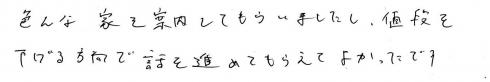 色んな家を案内してもらいましたし、値段を
下げる方向で話を進めてもらえてよかったです